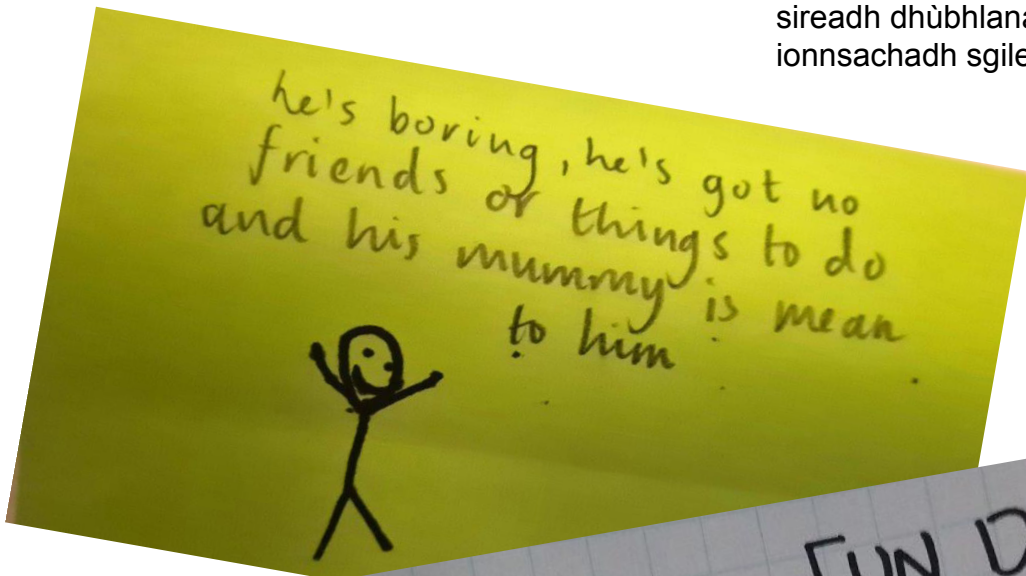 sireadh
ionnsachadh
he's boring, he's got no
friends or things to do
and his mummy is mean
to him
FUN